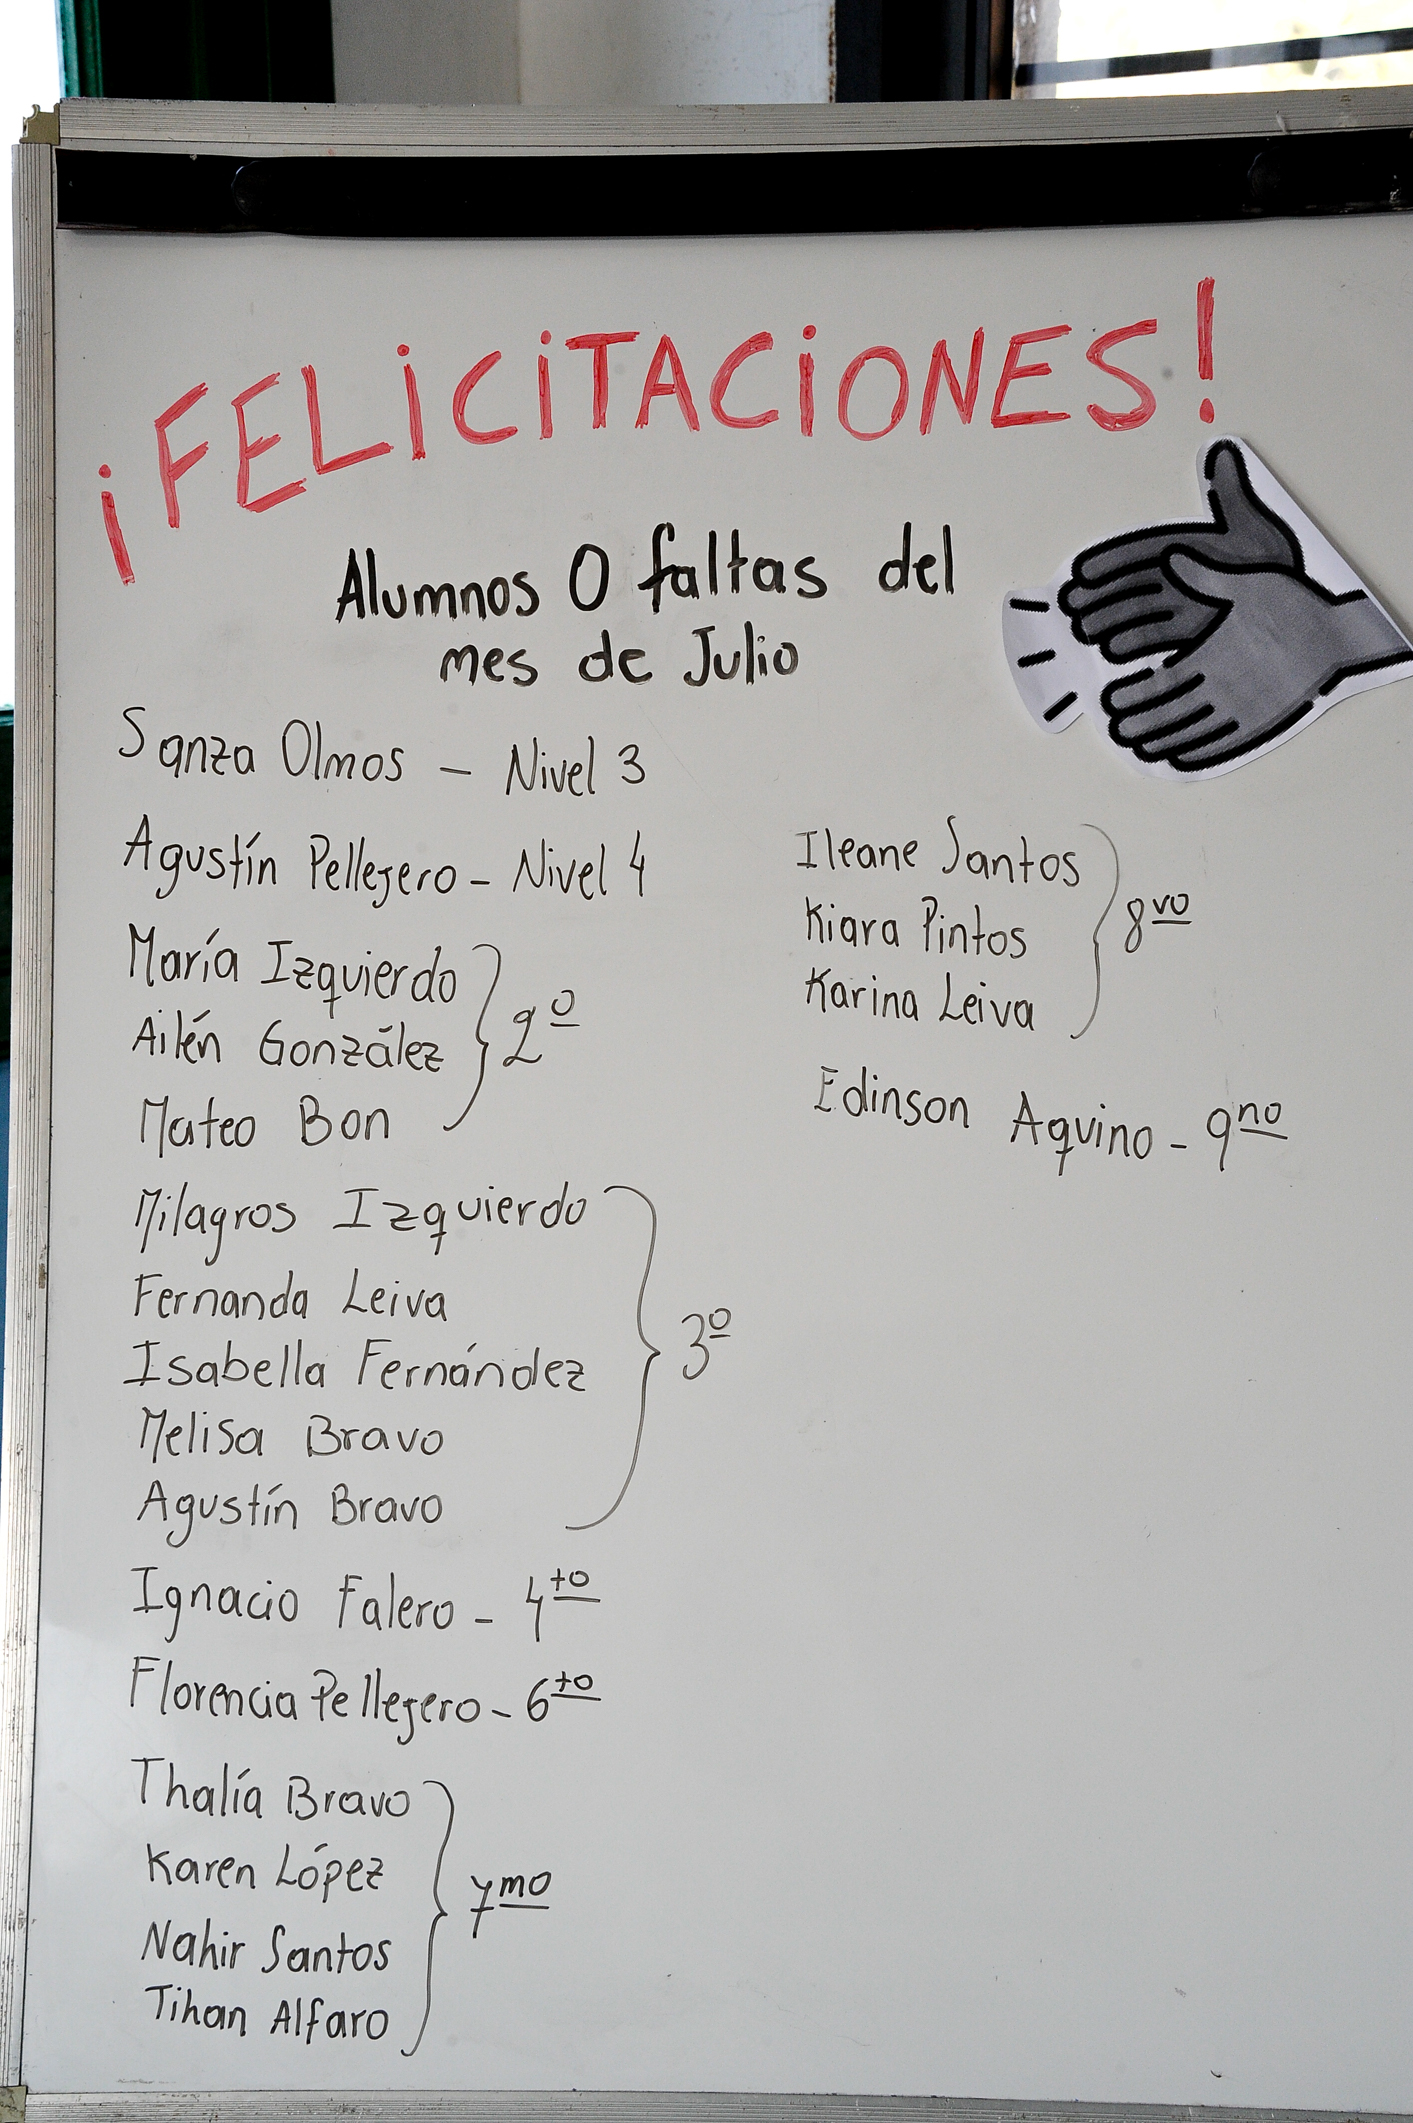 ¡FELICITACIONES!
Alumnos 0 faltas del
mes de Julio
Sanza Olmos - Nivel 3
Agustín Pellejero - Nivel 4
María Izquierdo
Ailén González
Mateo Bon
2º
Milagros Izquierdo
Fernanda Leiva
Isabella Fernández
Melisa Bravo
Agustín Bravo
3º
Ignacio Falero - 4to
Florencia Pellejero - 6to
Thalía Bravo
Karen López
Nahir Santos
Tihan Alfaro
7mo
Ileane Santos
Kiara Pintos
Karina Leiva
8vo
Edinson Aquino - 9no